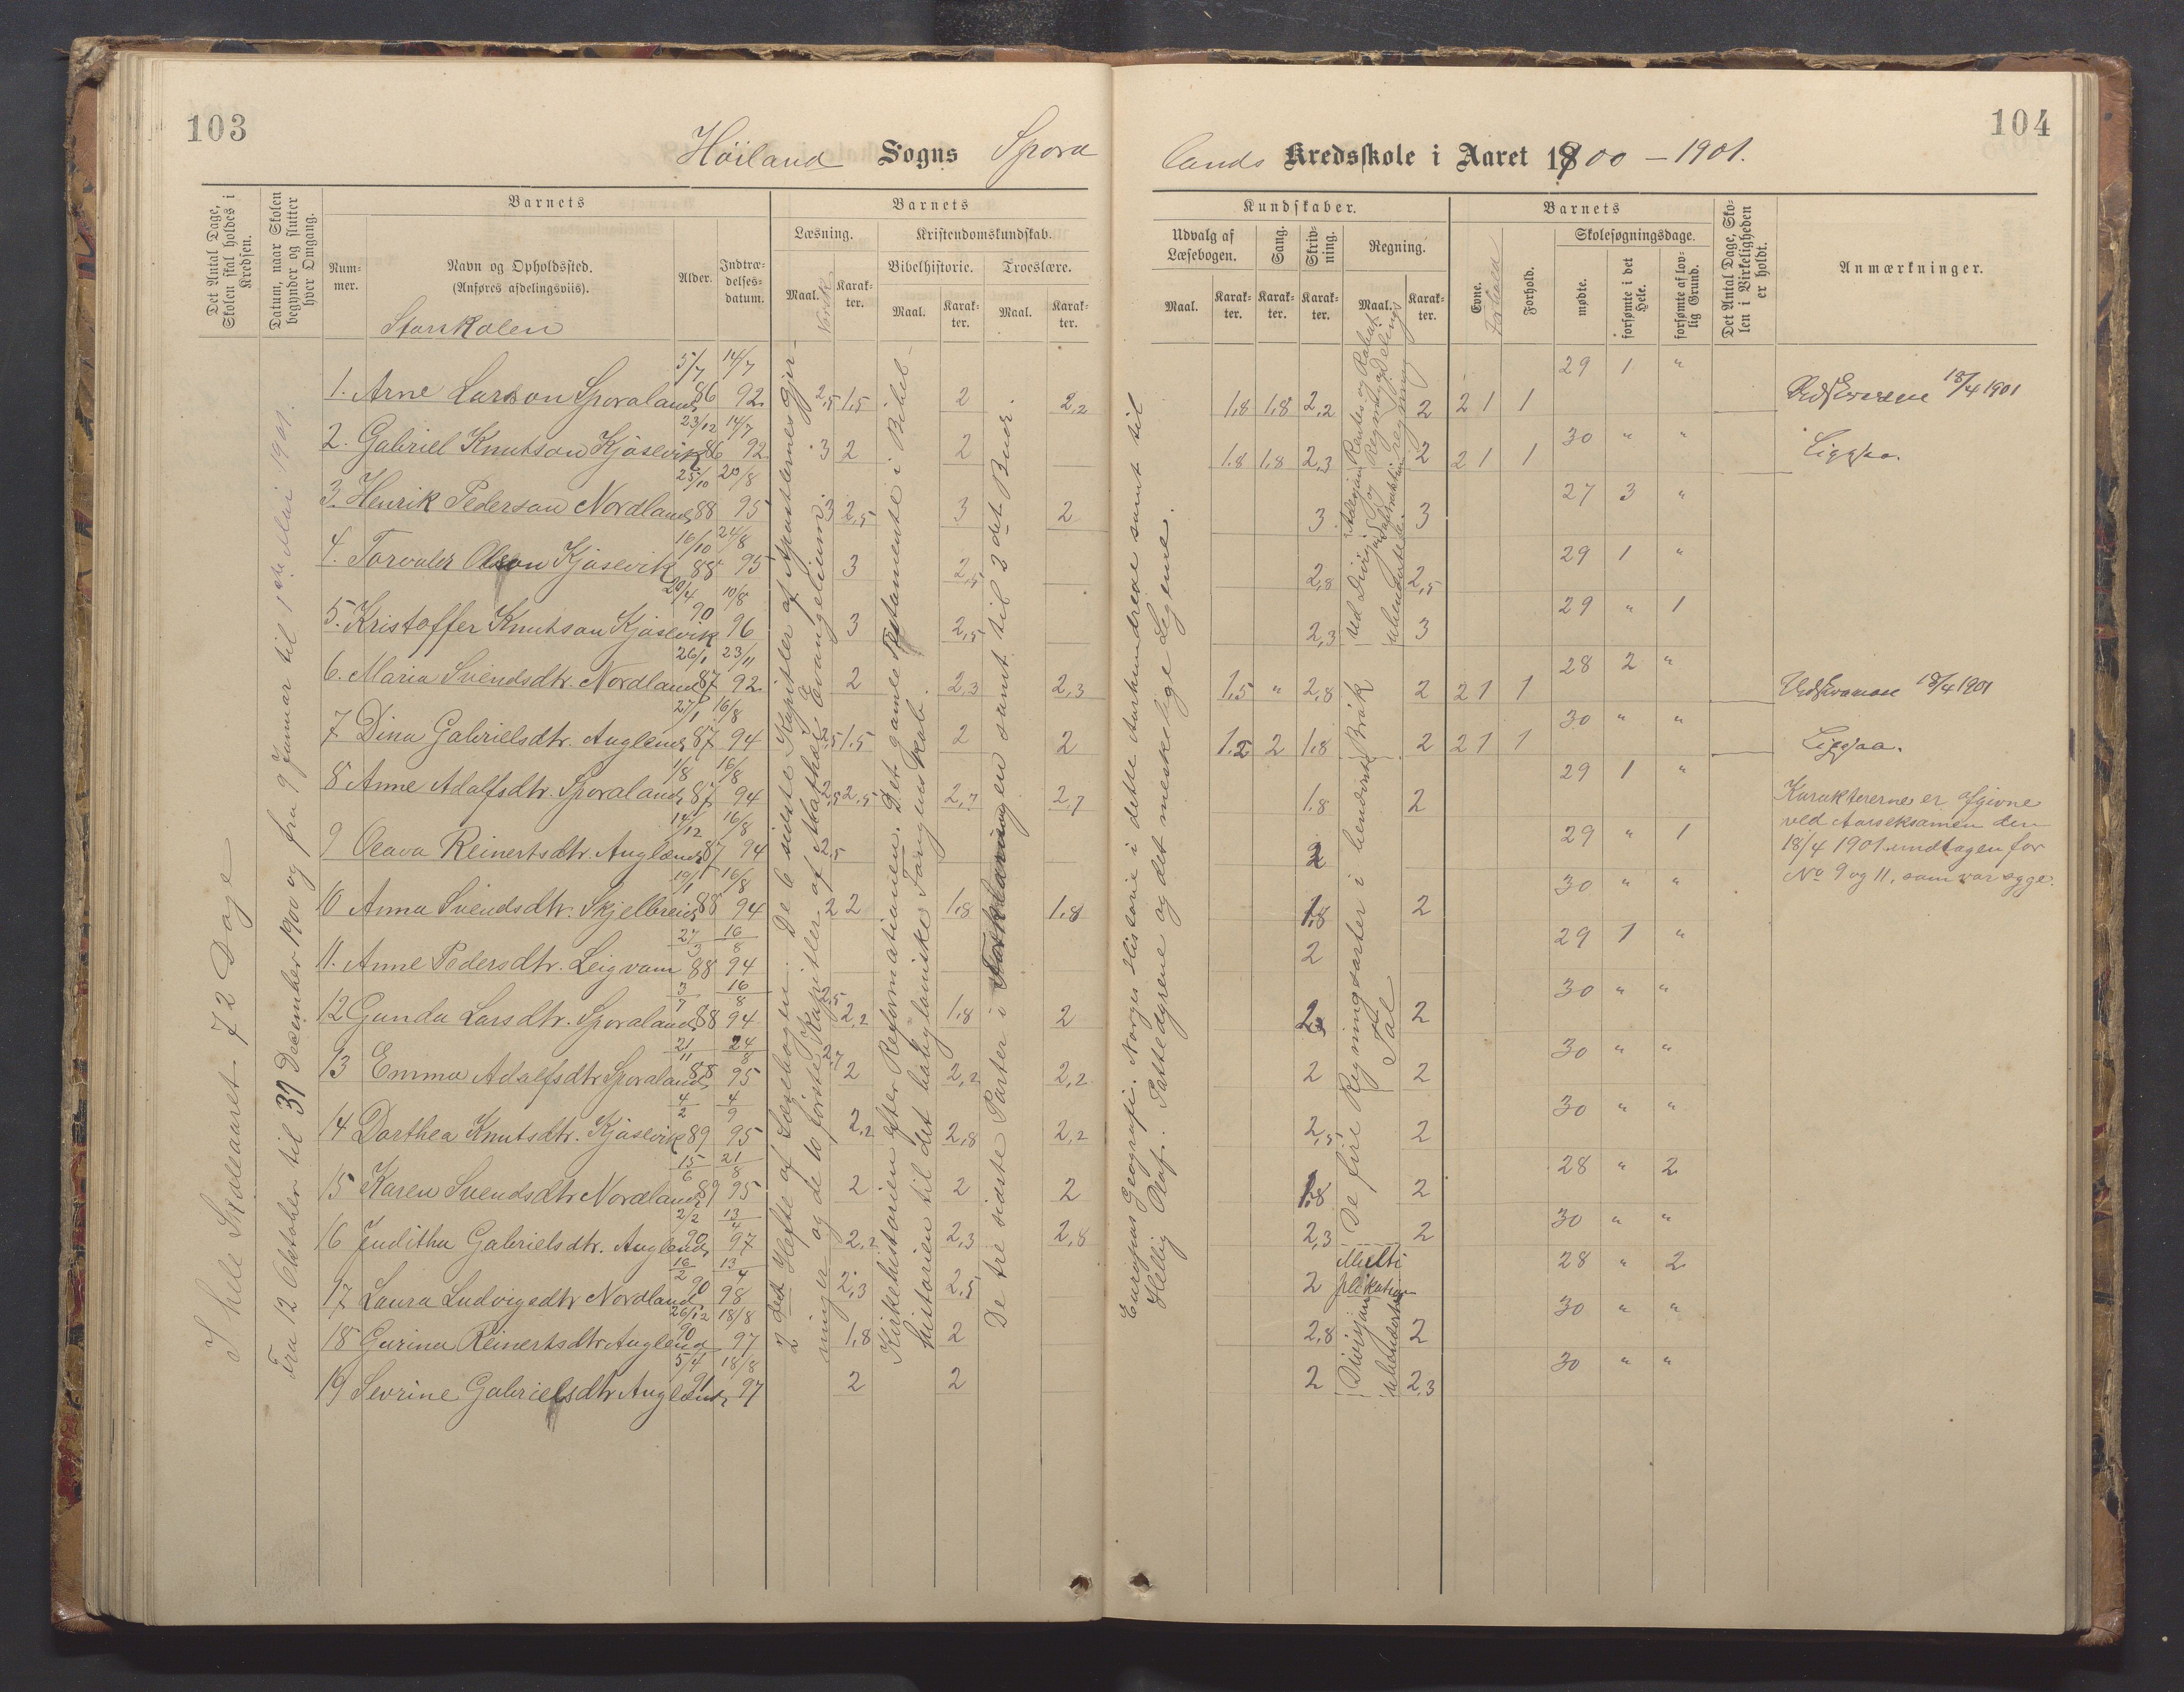 103
104
Höiland Sogns Spora
lands Kredsskole i Aaret 1900 - 1901.
Det Antal Dage, Skolen skal holdes i Kredsen.
Datum, naar Skolen begynder og slutter hver Omgang.
Barnets
Num-
mer.
Navn og Opholdssted.
(Anføres afdelingsviis).
Storskolen
Alder.
Indtræ-
delses-
datum.
Barnets
Læsning.
Kristendomskundskab.
Bibelhistorie.
Troeslære.
Maal.
Norsk
Karak-
ter.
Maal.
Karak-
ter.
Maal.
Karak-
ter.
Kundskaber.
Udvalg af
Læsebogen.
Sang.
Skriv-
ning.
Regning.
Maal.
Karak-
ter.
Karak-
ter.
Karak-
ter.
Maal.
Karak-
ter.
Barnets
Evne.
Forhold.
Skolesøgningsdage.
mødte.
forsømte i det
Hele.
forsømte af lov-
lig Grund.
Det Antal Dage, Sko-
len i Virkeligheden
er holdt.
Anmærkninger.
I hele Skoleaaret 72 Dage
Fra 12 Oktober til 31 December 1900 og fra 9 Januar til 1ste Mai 1901.
2det Hefte af Læsebogen. De 6 sidste Kapitler af Apostlernes Gjer-
ninger og de 10 første Kapitler af Mathæi Evangelium.
Kirkehistorien efter Reformationen. Det gamle Testamente i Bibel-
historien til det babyloniske Fangenskab.
De tre sidste Parter i Forklaringen samt til 3det Buer.
Europas Geografi. Norges Historie i dette Aarhundrede samt til
Hellig Olaf. Pattedyrene og det meskelige Legeme.
De fire Regningsarter i benævnte Bråk
Tal
Multi
plikation
Division
ubenævnte
1. Arne Larson Sporaland 5/7 86 14/7 92 2,5 1,5 2 2,2 1,8 1,8 2,2 2 2 1 1 29 1 "
18/4 1901
2. Gabriel Knutson Kjosevik 23/12 86 14/7 92 3 2 2 1,8 1,8 2,3 2 2 1 1 30 " "
3. Henrik Pederson Nordland 25/10 88 95 3 2,5 3 2 3 3 27 3 "
4. Torvald Olson Kjosevik 16/10 88 24/8 95 3 2,5 2,8 2,5 29 1 "
5. Kristoffer Knutson Kjosevik 90 10/8 96 3 2,5 2,3 3 29 " 1
6. Maria Svendsdtr. Nordland 26/1 87 23/11 92 2 2,3 2,3 1,5 " 2,8 2 2 1 1 28 2 "
18/4 1901
7 Dina Gabrielsdtr. Auglend 27/1 87 16/8 94 2,5 1,5 2 2 1,2 2 1,8 2 2 1 1 30 " "
8 Anne Adolfsdtr. Sporaland 1/8 87 16/8 94 2,5 2,5 2,7 2,7 1,8 2 29 1 "
9 Olava Reinertsdtr. Auglend 14/12 87 16/8 94 2,5 2 29 " 1
10 Anna Svendsdtr. Skjelbreid 19/1 88 16/8 94 2 2 1,8 1,8 1,8 2 30 " "
11. Anne Pedersdtr. Leigvam 27/3 88 16/8 94 2 29 1 "
12 Gunda Larsdtr. Sporaland 3/7 88 16/8 94 2,5 2,2 1,8 2 2,3 2 30 " "
13 Emma Adolfsdtr Sporaland 21/11 88 24/8 95 2,7 2 2,2 2,2 2 2 30 " "
14 Dorthea Knutsdtr. Kjosevik 4/2 89 4/9 95 2,2 2,8 2,2 2,5 2 30 " "
15 Karen Svendsdtr Nordland 15/6 89 21/8 95 2 2 2 1,8 2 28 " 2
16 Juditha Gabrielsdtr. Auglend 2/2 90 13/4 97 2,2 2,3 2,8 2,3 2 30 " "
17 Laura Ludvigsdtr Nordland 16/2 90 13/4 98 2,3 2,5 2 28 " 2
18 Gurina Reinertsdtr Auglend 26/12 90 18/8 97 1,8 2 2,8 2 30 " "
19 Sevrine Gabrielsdtr Auglend 5/4 91 18/8 97 2 2 2 2,3 30 " "
Karaktererne er afgivne
ved Aarseksamen den
18/4 1901 undtagen for
No 9 og 11, som var syge.